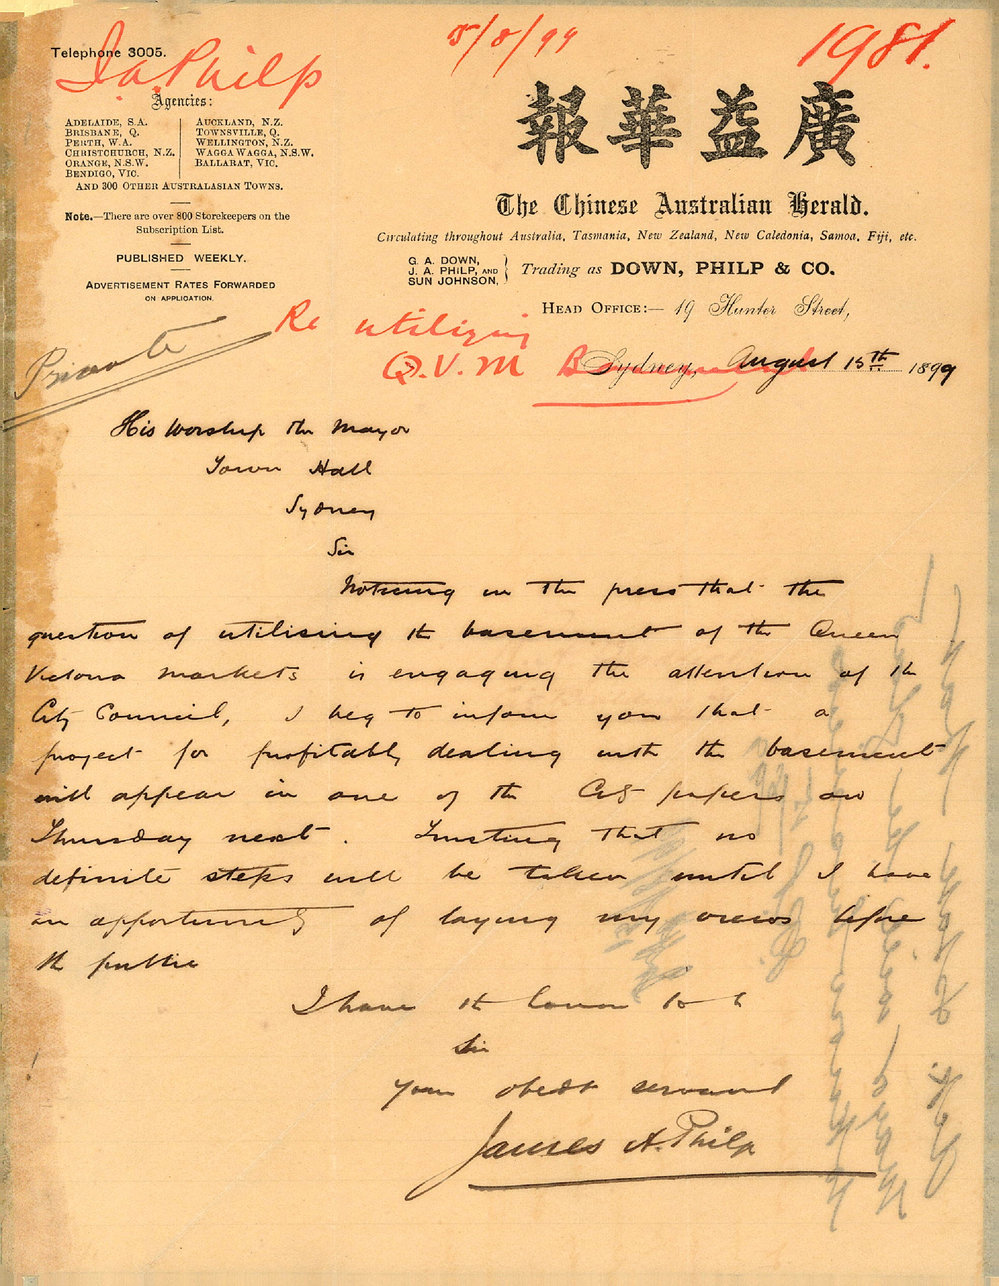 Telephone 3005.
J. A. Philp
15/8/99
1981.
Agencies:
ADELAIDE, S.A.
BRISBANE, Q.
PERTH, W.A.
CHRISTCHURCH, N.Z.
ORANGE, N.S.W.
BENDIGO, VIC.
AUCKLAND, N.Z.
TOWNSVILLE, Q.
WELLINGTON, N.Z.
WAGGA WAGGA, N.S.W.
BALLARAT, VIC.
AND 300 OTHER AUSTRALASIAN TOWNS.
Note.—There are over 800 Storekeepers on the
Subscription List.
PUBLISHED WEEKLY.
ADVERTISEMENT RATES FORWARDED
ON APPLICATION.
報華益廣
The Chinese Australian Herald.
Circulating throughout Australia, Tasmania, New Zealand, New Caledonia, Samoa, Fiji, etc.
G. A. DOWN,
J. A. PHILP, AND
SUN JOHNSON,
Trading as DOWN, PHILP & CO.
HEAD OFFICE:— 19 Hunter Street,
Re utilizing
Q.V.M Basement
Private
Sydney, August 15th 1899
His Worship the Mayor
Town Hall
Sydney
Sir
Noticing in the press that the
question of utilising the basement of the Queen
Victoria Markets is engaging the attention of the
City Council, I beg to inform you that a
project for profitably dealing with the basement
will appear in one of the City papers on
Thursday next. Trusting that no
definite steps will be taken until I have
an opportunity of laying my views before
the public
I have the honor to be
Sir
Your obedt servant
James A. Philp